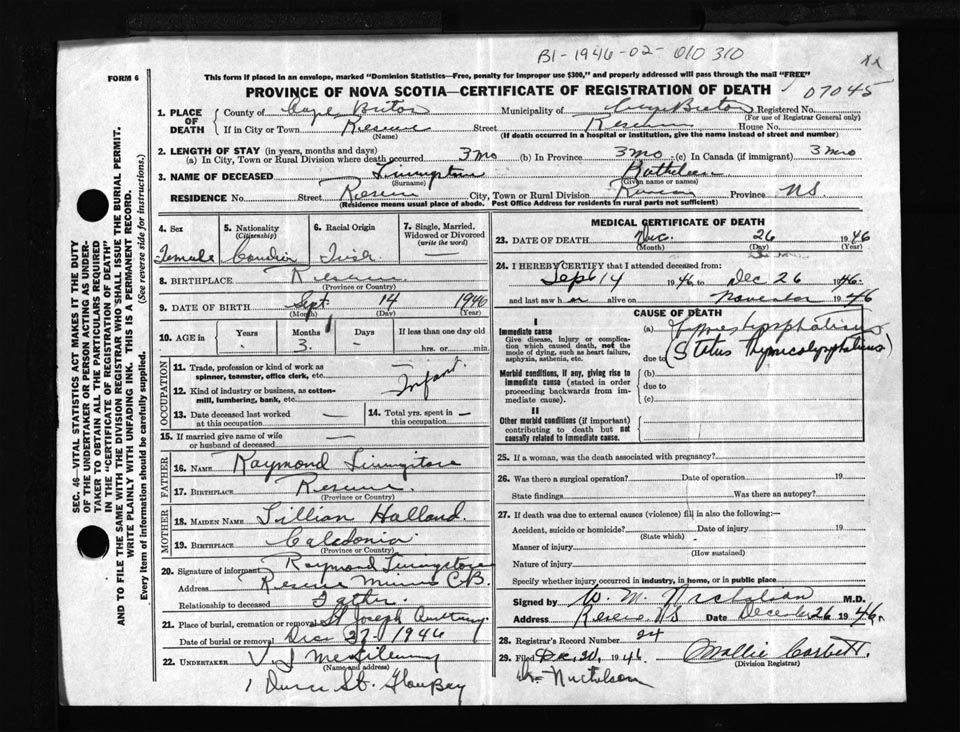 B1-1946-02-010310
FORM 6
This form if placed in an envelope, marked "Dominion Statistics—Free, penalty for improper use $300," and properly addressed will pass through the mail "FREE"
PROVINCE OF NOVA SCOTIA—CERTIFICATE OF REGISTRATION OF DEATH
07045
SEC. 46—VITAL STATISTICS ACT MAKES IT THE DUTY
OF THE UNDERTAKER OR PERSON ACTING AS UNDER-
TAKER TO OBTAIN ALL THE PARTICULARS REQUIRED
IN THE "CERTIFICATE OF REGISTRATION OF DEATH"
AND TO FILE THE SAME WITH THE DIVISION REGISTRAR WHO SHALL ISSUE THE BURIAL PERMIT.
WRITE PLAINLY WITH UNFADING INK. THIS IS A PERMANENT RECORD.
Every item of information should be carefully supplied. (See reverse side for instructions.)
1. PLACE OF DEATH
County of Cape Breton Municipality of Cape Breton Registered No.
(For use of Registrar General only)
If in City or Town Reserve Street Reserve House No.
(Name) (If death occurred in a hospital or institution, give the name instead of street and number)
2. LENGTH OF STAY (in years, months and days)
(a) In City, Town or Rural Division where death occurred 3 mo (b) In Province 3 mo (c) In Canada (if immigrant) 3 mo
3. NAME OF DECEASED Livingstone Kathleen
(Surname) (Given name or names)
RESIDENCE No. Street Reserve City, Town or Rural Division Reserve Province NS
(Residence means usual place of abode. Post Office Address for residents in rural parts not sufficient)
4. Sex
5. Nationality
(Citizenship)
6. Racial Origin
7. Single, Married,
Widowed or Divorced
(write the word)
Female Canadian Irish —
8. BIRTHPLACE Reserve
(Province or Country)
9. DATE OF BIRTH Sept 14 1946
(Month) (Day) (Year)
10. AGE in
Years Months Days If less than one day old
— 3 — hrs. or min.
OCCUPATION
11. Trade, profession or kind of work as
spinner, teamster, office clerk, etc. —
12. Kind of industry or business, as cotton-
mill, lumbering, bank, etc.
Infant
13. Date deceased last worked
at this occupation —
14. Total yrs. spent in
this occupation —
15. If married give name of wife
or husband of deceased —
FATHER
16. NAME Raymond Livingstone
17. BIRTHPLACE Reserve
(Province or Country)
MOTHER
18. MAIDEN NAME Lillian Holland
19. BIRTHPLACE Caledonia
(Province or Country)
20. Signature of informant Raymond Livingstone
Address Reserve Mines C.B.
Relationship to deceased Father
21. Place of burial, cremation or removal St Joseph Cemetery
Date of burial or removal Dec 27 1946
22. UNDERTAKER V J
(Name and address)
St. Glace Bay
MEDICAL CERTIFICATE OF DEATH
23. DATE OF DEATH Dec. 26 1946
(Month) (Day) (Year)
24. I HEREBY CERTIFY that I attended deceased from:
Sept 14 1946, to Dec 26 1946.
and last saw her alive on November 1946
CAUSE OF DEATH
I
Immediate cause
Give disease, injury or complica-
tion which caused death, not the
mode of dying, such as heart failure,
asphyxia, asthenia, etc.
(a)
due to (Status Thymicolymphaticus)
Morbid conditions, if any, giving rise to
immediate cause (stated in order
proceeding backwards from im-
mediate cause).
(b)
due to
(c)
II
Other morbid conditions (if important)
contributing to death but not
causally related to immediate cause.
25. If a woman, was the death associated with pregnancy?
26. Was there a surgical operation? Date of operation 19
State findings Was there an autopsy?
27. If death was due to external causes (violence) fill in also the following:—
Accident, suicide or homicide? Date of injury 19
(State which)
Manner of injury
(How sustained)
Nature of injury
Specify whether injury occurred in industry, in home, or in public place
Signed by W. M. Nicholson M.D.
Address Reserve NS Date December 26 1946.
28. Registrar's Record Number 24
29. Filed Dec. 30, 1946. Mollie Corbett.
(Division Registrar)
Dr Nicholson